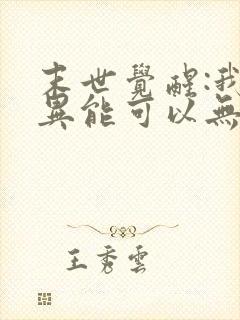 末世覺醒:我
異能可以無
王秀雲